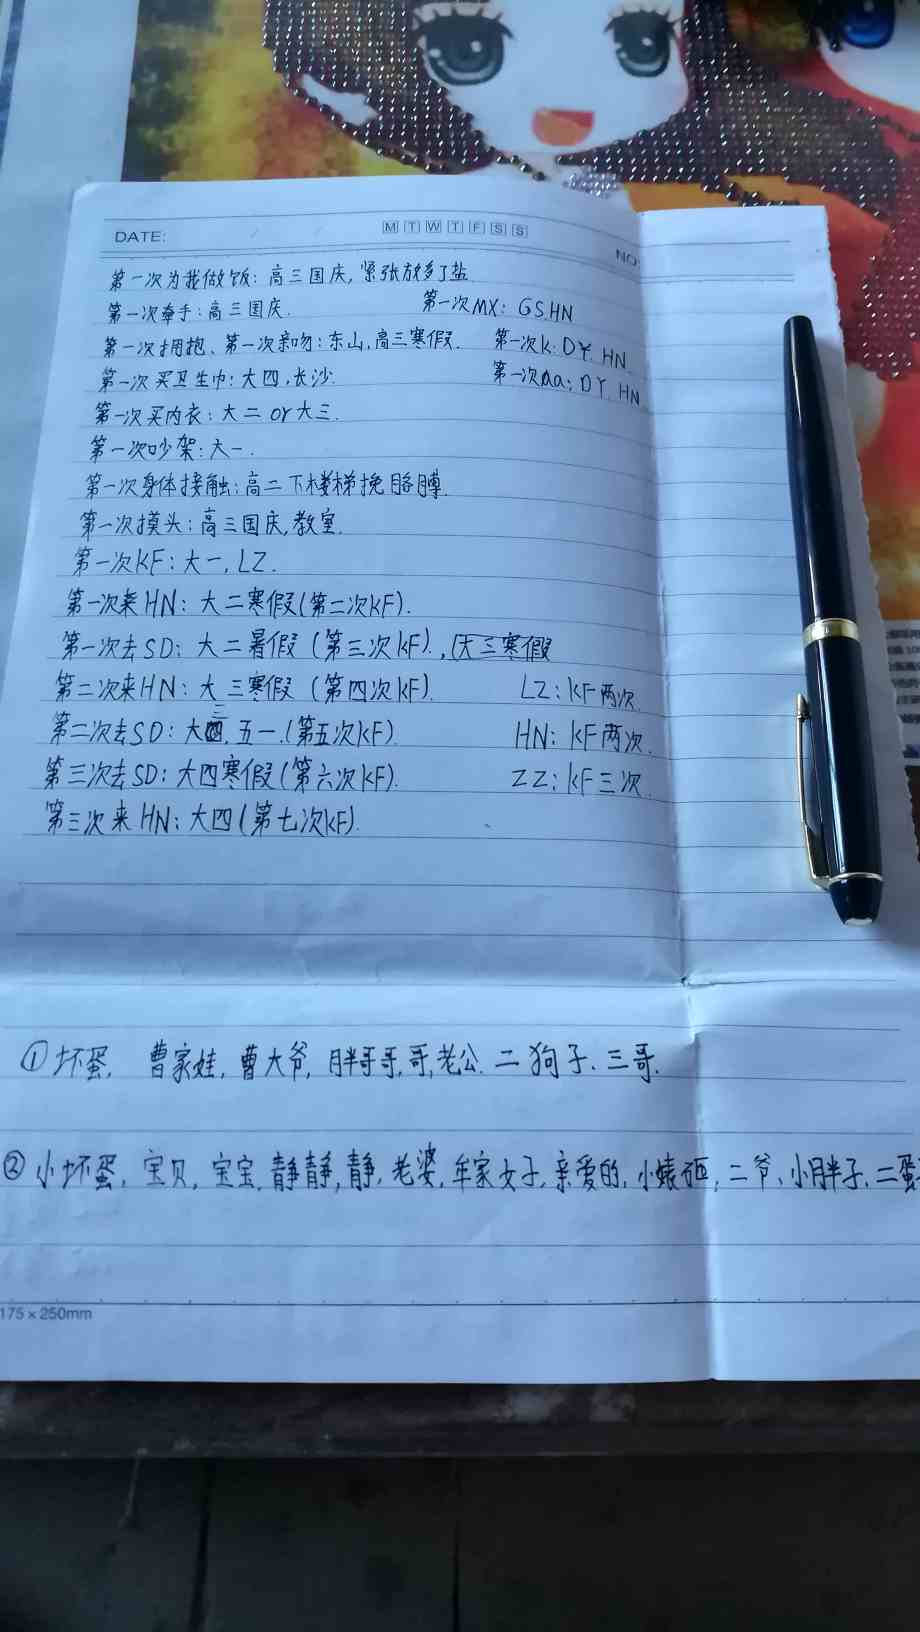 DATE: M T W T F S S
NO
第一次为我做饭：高三国庆，紧张放多了盐
第一次牵手：高三国庆. 第一次MX：GS.HN
第一次拥抱、第一次亲吻：东山，高三寒假. 第一次K：DY. HN
第一次买卫生巾：大四，长沙. 第一次aa：DY. HN
第一次买内衣：大二or大三.
第一次吵架：大一.
第一次身体接触：高二下楼梯挽胳膊.
第一次摸头：高三国庆，教室.
第一次KF：大一，LZ.
第一次来HN：大二寒假(第二次KF).
第一次去SD：大二暑假 (第三次KF).，大三寒假
第二次来HN：大三寒假 (第四次KF). LZ：KF两次.
第二次去SD：大三. 五一.(第五次KF). HN：KF两次.
第三次去SD：大四寒假(第六次KF). ZZ：KF三次.
第三次来HN：大四(第七次KF).
①坏蛋, 曹家娃, 曹大爷, 胖哥哥, 哥, 老公. 二狗子. 三哥.
②小坏蛋, 宝贝, 宝宝, 静静静, 静, 老婆, 牟家女子, 亲爱的, 小婊砸, 二爷、小胖子. 二蛋
175×250mm